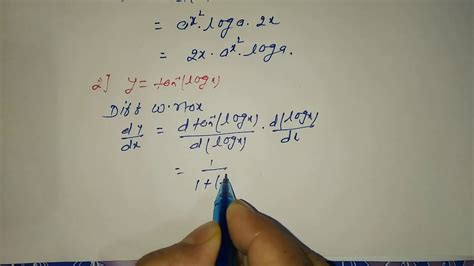 = a^x². log a. 2x
= 2x. a^x². log a.
2] y = tan⁻¹(log x)
Diff w.r.to x
dy/dx = d tan⁻¹(log x)/d(log x) . d(log x)/dx
= 1/1+(